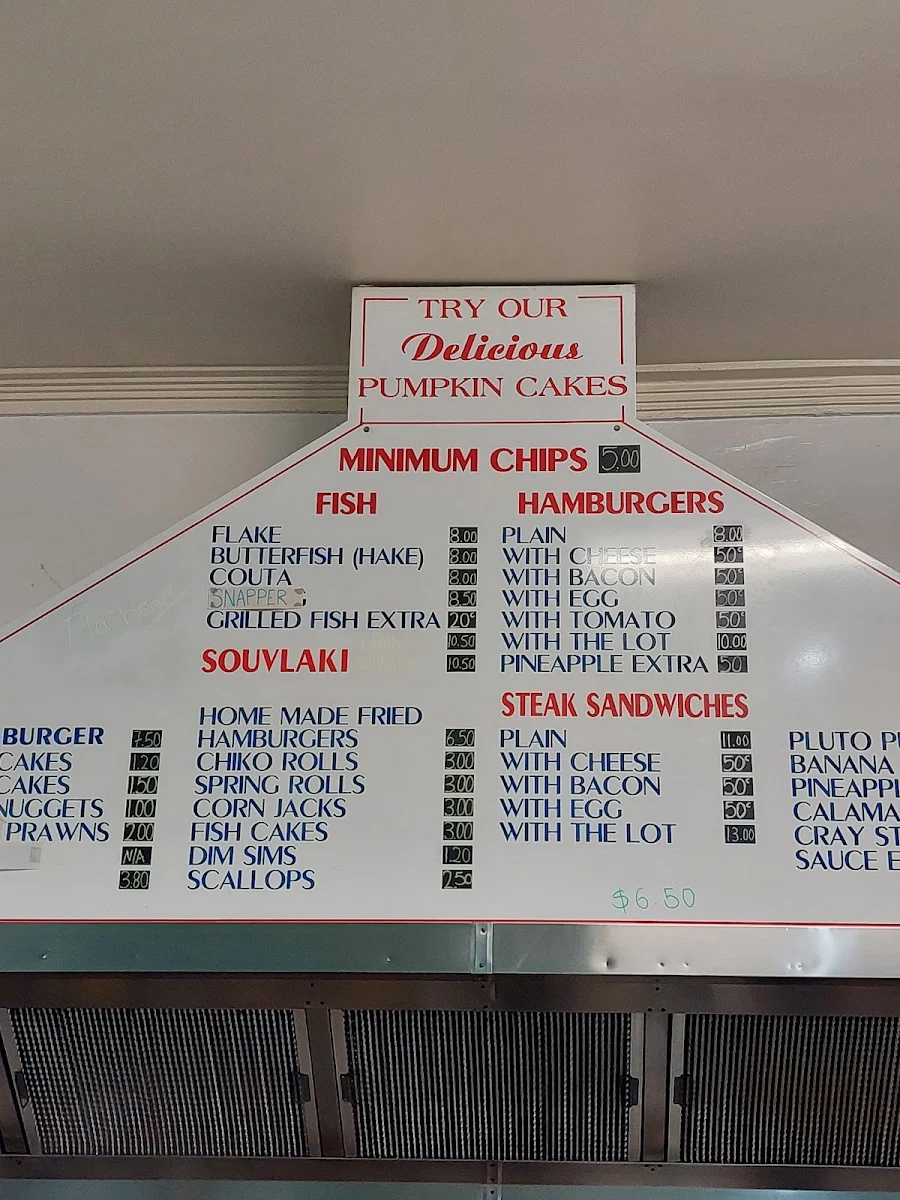 TRY OUR
Delicious
PUMPKIN CAKES
MINIMUM CHIPS 5.00
FISH
FLAKE 8.00
BUTTERFISH (HAKE) 8.00
COUTA 8.00
SNAPPER 8.50
GRILLED FISH EXTRA 20¢
10.50
SOUVLAKI 10.50
HAMBURGERS
PLAIN 8.00
WITH CHEESE 50¢
WITH BACON 50¢
WITH EGG 50¢
WITH TOMATO 50¢
WITH THE LOT 10.00
PINEAPPLE EXTRA 50
BURGER 7.50
CAKES 1.20
CAKES 1.50
NUGGETS 1.00
PRAWNS 2.00
N/A
3.80
HOME MADE FRIED
HAMBURGERS 6.50
CHIKO ROLLS 3.00
SPRING ROLLS 3.00
CORN JACKS 3.00
FISH CAKES 3.00
DIM SIMS 1.20
SCALLOPS 2.50
STEAK SANDWICHES
PLAIN 11.00
WITH CHEESE 50¢
WITH BACON 50¢
WITH EGG 50¢
WITH THE LOT 13.00
$6.50
PLUTO PU
BANANA
PINEAPPL
CALAMA
CRAY ST
SAUCE E